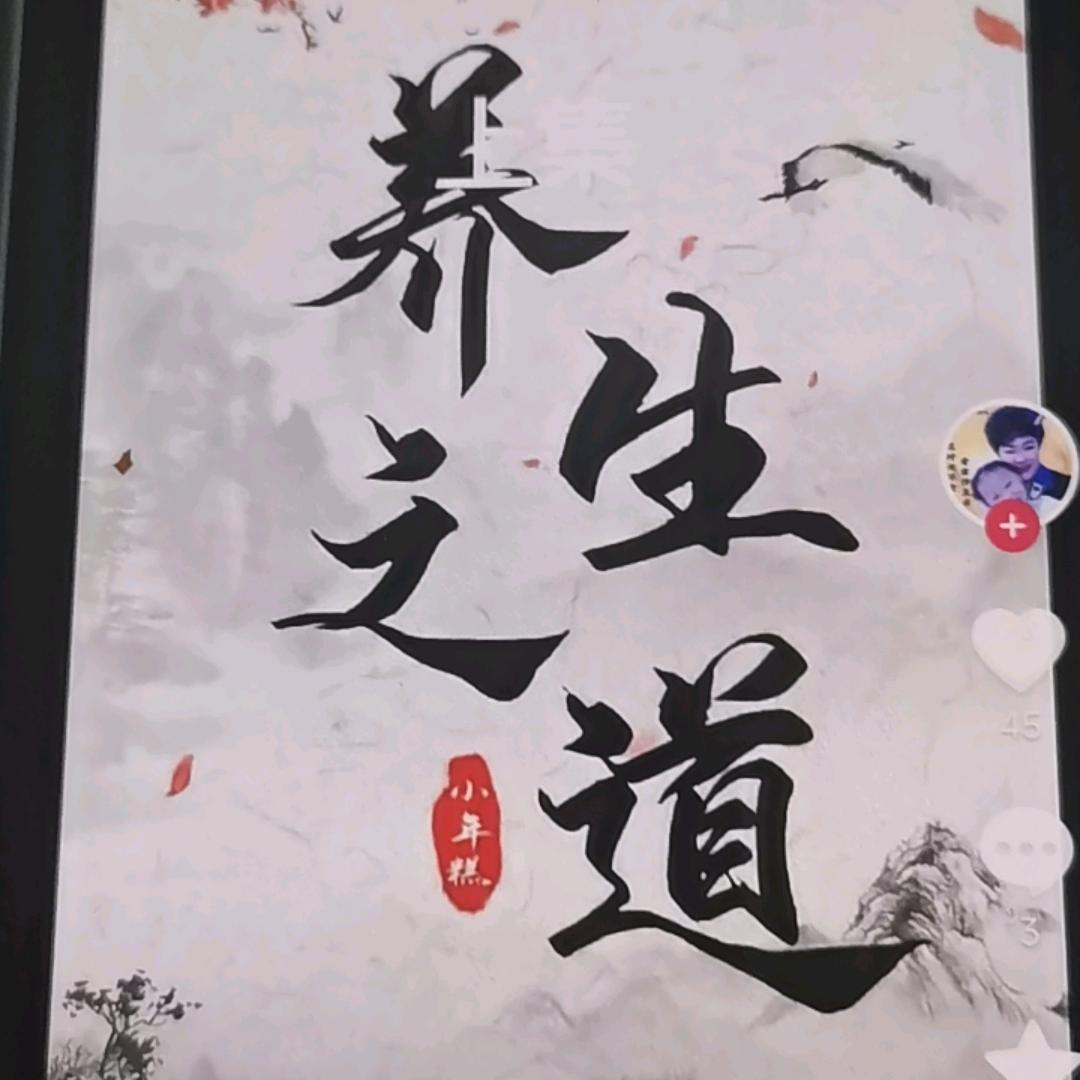 上集
养生
之道
小年糕
45
3